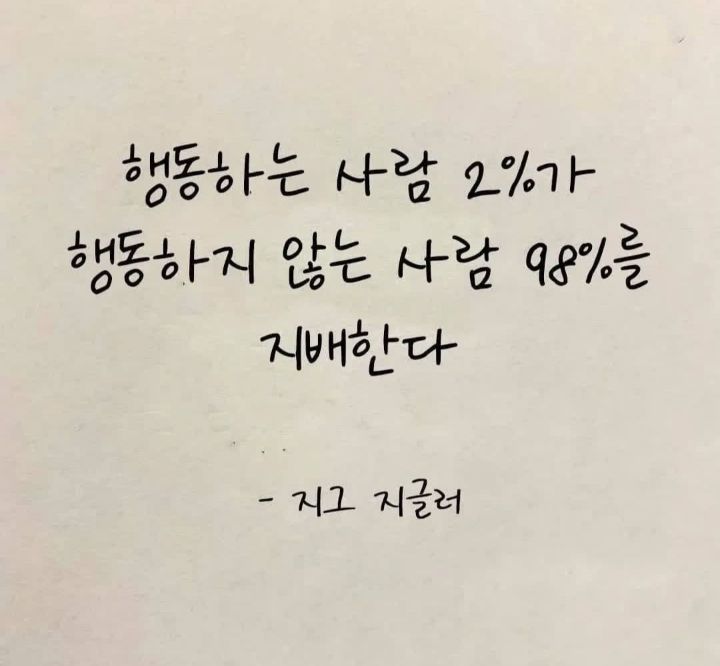 행동하는 사람 2%가
행동하지 않는 사람 98%를
지배한다
- 지그 지글러